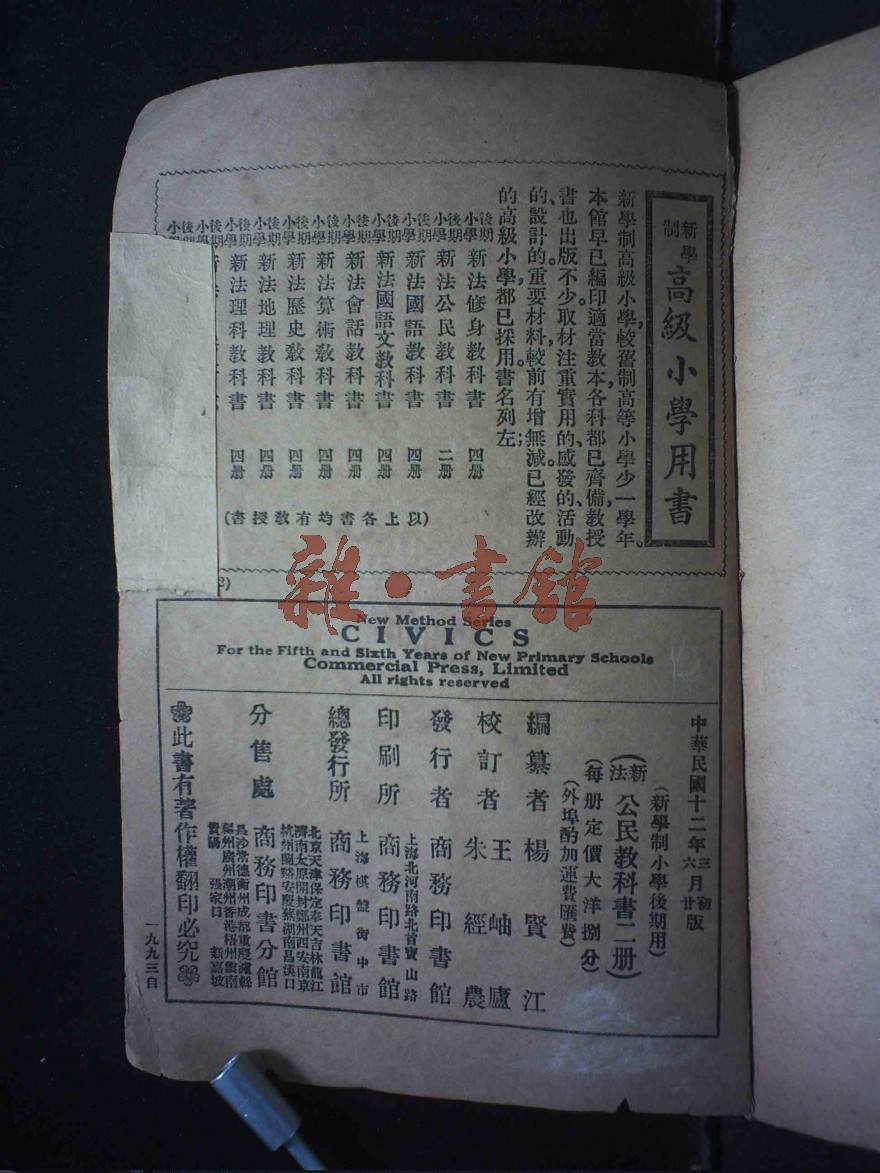 新學制
高級小學用書
新學制高級小學,較舊制高等小學少一學年。
本館早已編印適當教本,各科都已齊備,教授
書也出版不少。取材注重實用的、感發的、活動
的、設計的。重要材料,較前有增無減。已經改辦
的高級小學,都已採用。書名列左;
後期小學 新法修身教科書 四册
後期小學 新法公民教科書 二册
後期小學 新法國語教科書 四册
後期小學 新法國語文教科書 四册
後期小學 新法會話教科書 四册
後期小學 新法算術教科書 四册
後期小學 新法歷史教科書 四册
後期小學 新法地理教科書 四册
後期小學 新法理科教科書 四册
(以上各書均有教授書)
雜·書館
New Method Series
CIVICS
For the Fifth and Sixth Years of New Primary Schools
Commercial Press, Limited
All rights reserved
中華民國十二年三月初版
六月廿版
(新學制小學後期用)
(新法公民教科書二册)
(每册定價大洋捌分)
(外埠酌加運費匯費)
編纂者 楊賢江
校訂者 王岫廬
朱經農
發行者 商務印書館
上海北河南路北首寶山路
印刷所 商務印書館
上海棋盤街中市
總發行所 商務印書館
北京天津保定奉天吉林龍江
濟南太原開封鄭州西安南京
杭州蘭谿安慶蕪湖南昌漢口
分售處 商務印書分館
長沙常德衡州成都重慶瀘縣
福州廣州潮州香港梧州雲南
貴陽 張家口 新嘉坡
此書有著作權翻印必究
一九九三自